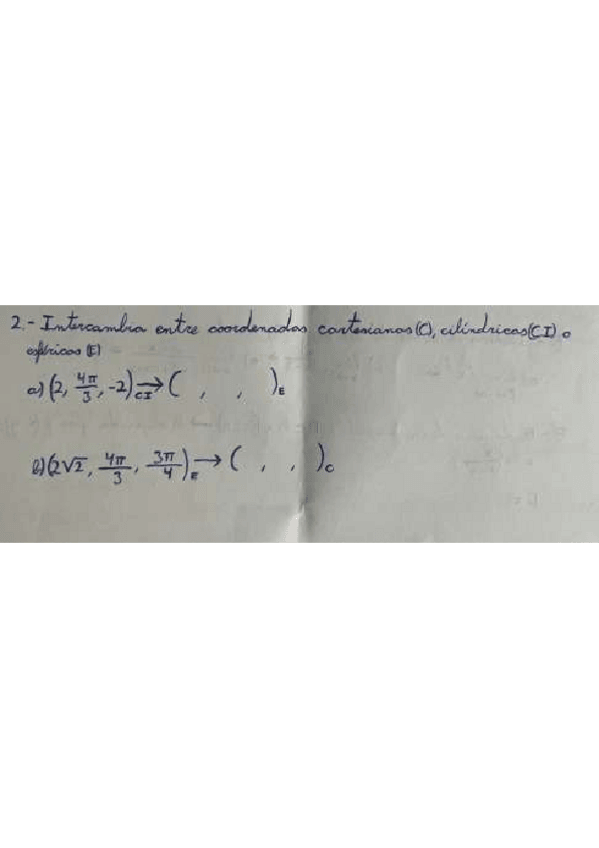 2.- Intercambia entre coordenadas cartesianas (C), cilíndricas (CI) o
esféricas (E)
a) (2, 4π/3, -2)_CI → ( , , )_E
b) (2√2, 4π/3, 3π/4)_E → ( , , )_C